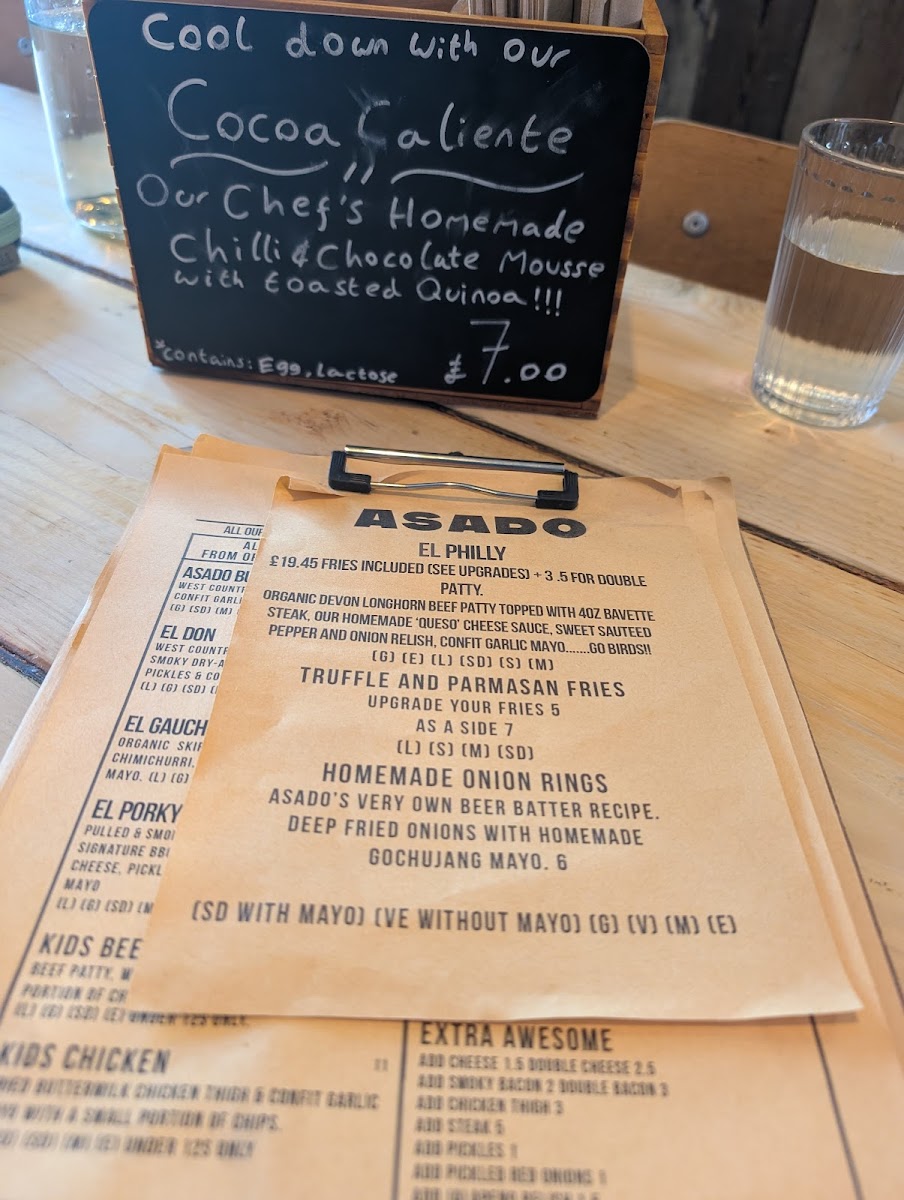 Cool down with our
Cocoa Caliente
Our Chef's Homemade
Chilli & Chocolate Mousse
with toasted Quinoa!!!
£7.00
*contains: Egg, Lactose
ASADO
EL PHILLY
£19.45 FRIES INCLUDED (SEE UPGRADES) + 3 .5 FOR DOUBLE
PATTY.
ORGANIC DEVON LONGHORN BEEF PATTY TOPPED WITH 4OZ BAVETTE
STEAK, OUR HOMEMADE 'QUESO' CHEESE SAUCE, SWEET SAUTEED
PEPPER AND ONION RELISH, CONFIT GARLIC MAYO.......GO BIRDS!!
(G) (E) (L) (SD) (S) (M)
TRUFFLE AND PARMASAN FRIES
UPGRADE YOUR FRIES 5
AS A SIDE 7
(L) (S) (M) (SD)
HOMEMADE ONION RINGS
ASADO'S VERY OWN BEER BATTER RECIPE.
DEEP FRIED ONIONS WITH HOMEMADE
GOCHUJANG MAYO. 6
(SD WITH MAYO) (VE WITHOUT MAYO) (G) (V) (M) (E)
ALL OUR
FROM
ASADO
WEST
CONFIT
(G) (SD) (M)
EL DON
WEST
SMOKY
PICKLES &
(L) (G) (SD)
EL
ORGANIC
CHIMICHURRI,
MAYO. (L) (G)
EL PORKY
PULLED &
SIGNATURE
CHEESE,
MAYO
(L) (G) (SD)
KIDS
BEEF PATTY,
PORTION OF
(L) (G) (SD) (E) UNDER 12S ONLY.
KIDS CHICKEN 11
BUTTERMILK CHICKEN THIGH & CONFIT GARLIC
WITH A SMALL PORTION OF CHIPS.
(SD) (M) (E) UNDER 12S ONLY
EXTRA AWESOME
ADD CHEESE 1.5 DOUBLE CHEESE 2.5
ADD SMOKY BACON 2 DOUBLE BACON 3
ADD CHICKEN THIGH 3
ADD STEAK 5
ADD PICKLES 1
ADD PICKLED RED ONIONS 1
ADD JALAPENO RELISH 1.5